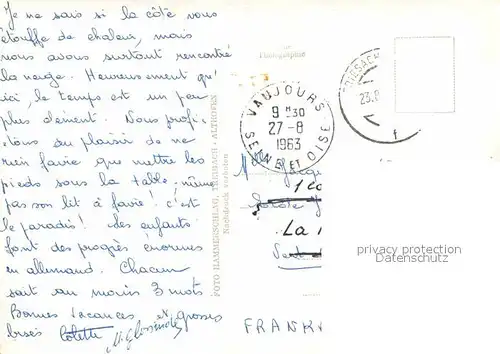 Je ne sais si la côte vous
étouffe de chaleur, mais
nous avons surtout rencontré
la neige. Heureusement qu'
ici, le temps est un peu
plus clément. Nous profi-
-tons du plaisir de ne
rien faire que mettre les
pieds sous la table. même
pas son lit à faire! c'est
le paradis! Les enfants
font des progrès énormes
en allemand. Chacun
sait au moins 3 mots.
Bonnes vacances et grosses
bises Colette
FOTO HAMMERSCHLAG, TREIBACH - ALTHOFEN
Nachdruck verboten
Photographie
VAUJOURS
9 H 30
27-8
1963
SEINE ET OISE
FRIESACH
23.8
La
privacy protection
Datenschutz
FRANK